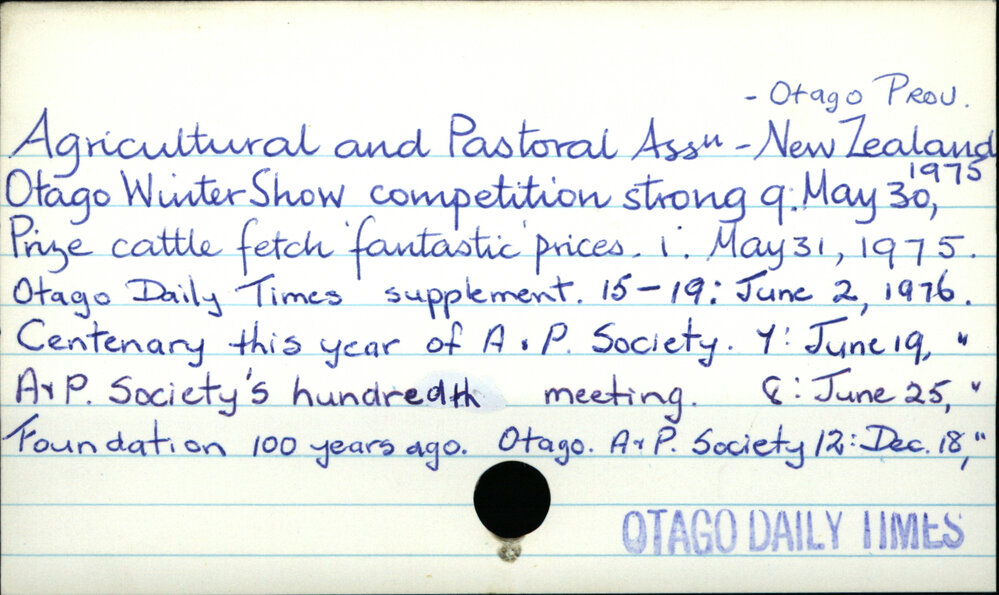 - Otago Prov.
Agricultural and Pastoral Assn - New Zealand
Otago Winter Show competition strong 9: May 30, 1975
Prize cattle fetch 'fantastic' prices. 1: May 31, 1975.
Otago Daily Times supplement. 15-19: June 2, 1976.
Centenary this year of A & P. Society. 7: June 19, "
A & P. Society's hundredth meeting. 8: June 25, "
Foundation 100 years ago. Otago. A & P. Society 12: Dec. 18, "
OTAGO DAILY TIMES